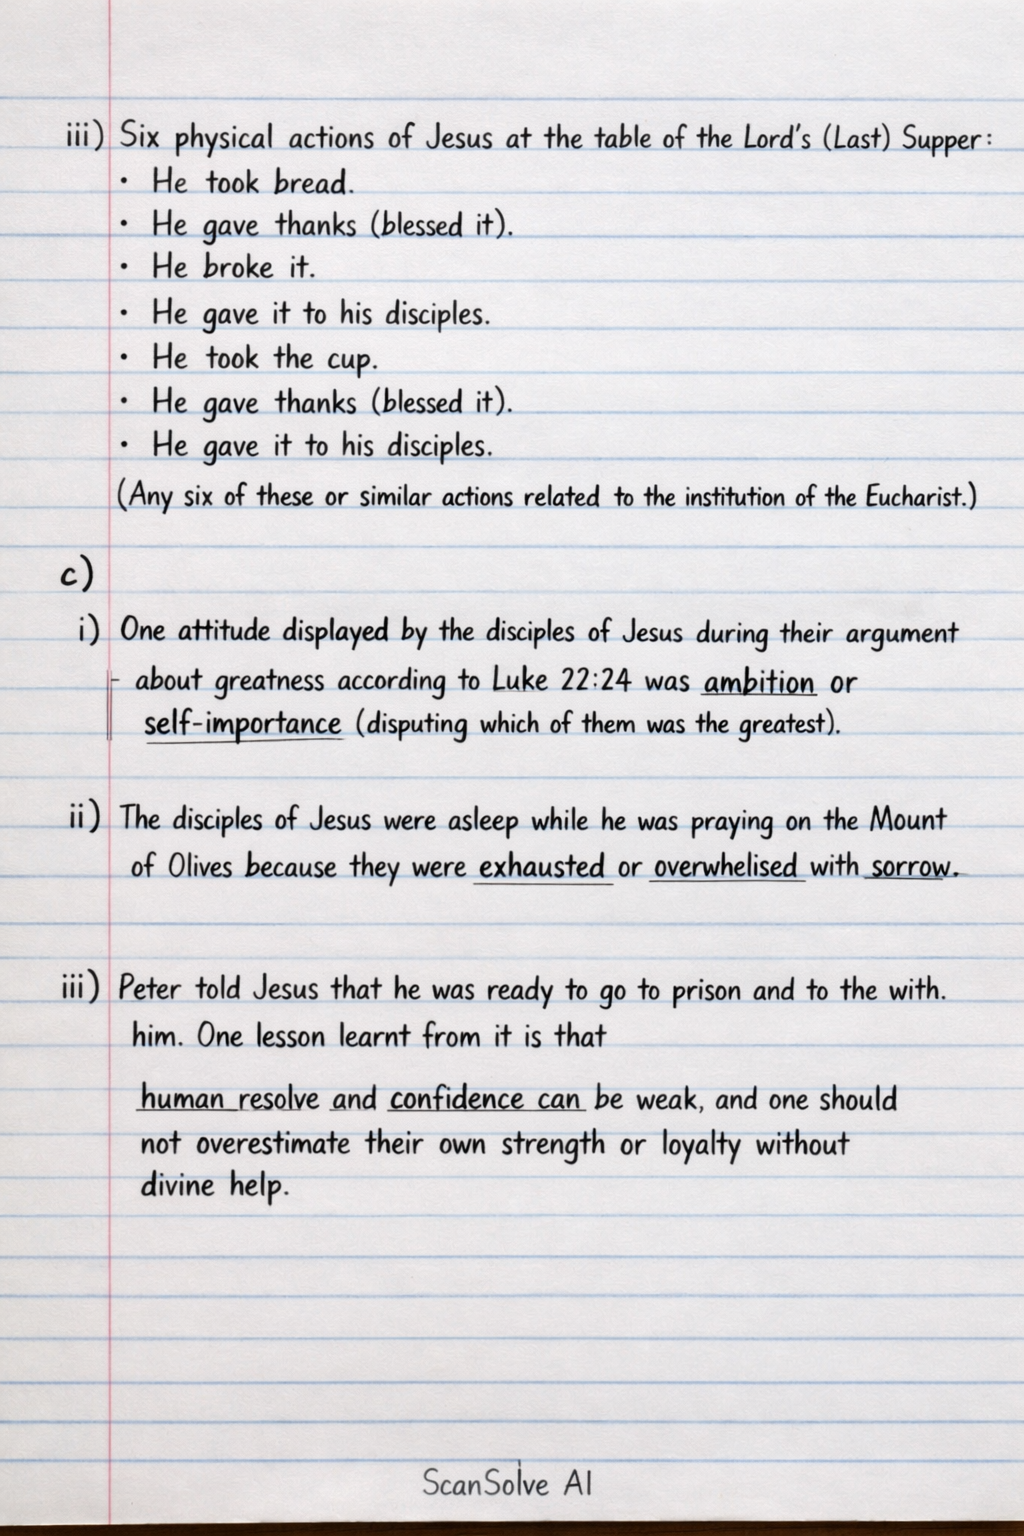 iii) Six physical actions of Jesus at the table of the Lord's (Last) Supper:
• He took bread.
• He gave thanks (blessed it).
• He broke it.
• He gave it to his disciples.
• He took the cup.
• He gave thanks (blessed it).
• He gave it to his disciples.
(Any six of these or similar actions related to the institution of the Eucharist.)
c)
i) One attitude displayed by the disciples of Jesus during their argument
about greatness according to Luke 22:24 was ambition or
self-importance (disputing which of them was the greatest).
ii) The disciples of Jesus were asleep while he was praying on the Mount
of Olives because they were exhausted or overwhelised with sorrow.
iii) Peter told Jesus that he was ready to go to prison and to the with.
him. One lesson learnt from it is that
human resolve and confidence can be weak, and one should
not overestimate their own strength or loyalty without
divine help.
ScanSolve AI